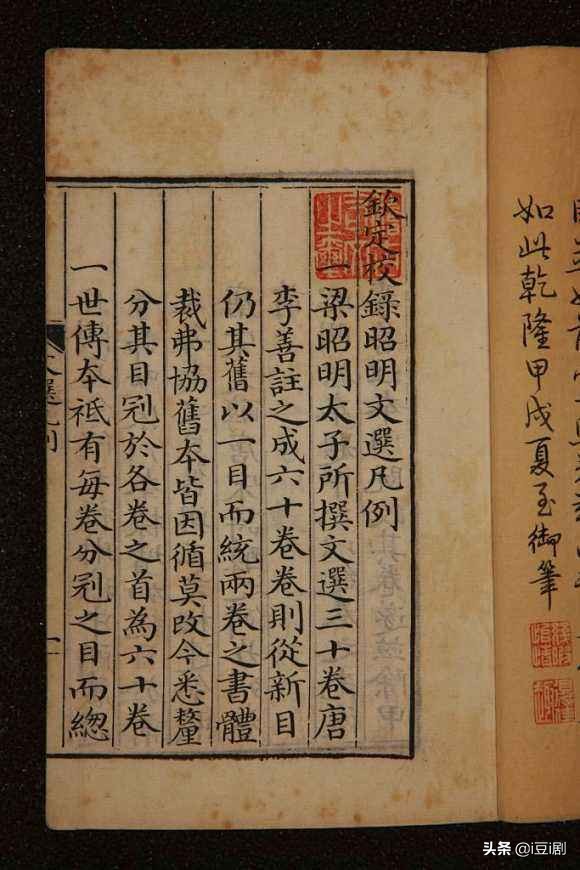 如此乾隆甲戌夏至御筆
欽定校錄昭明文選凡例
一梁昭明太子所撰文選三十卷唐
李善註之成六十卷卷則從新目
仍其舊以一目而統兩卷之書體
裁弗協舊本皆因循莫改今悉釐
分其目冠於各卷之首為六十卷
一世傳本祗有每卷分冠之目而緫
头条 @i豆i剧